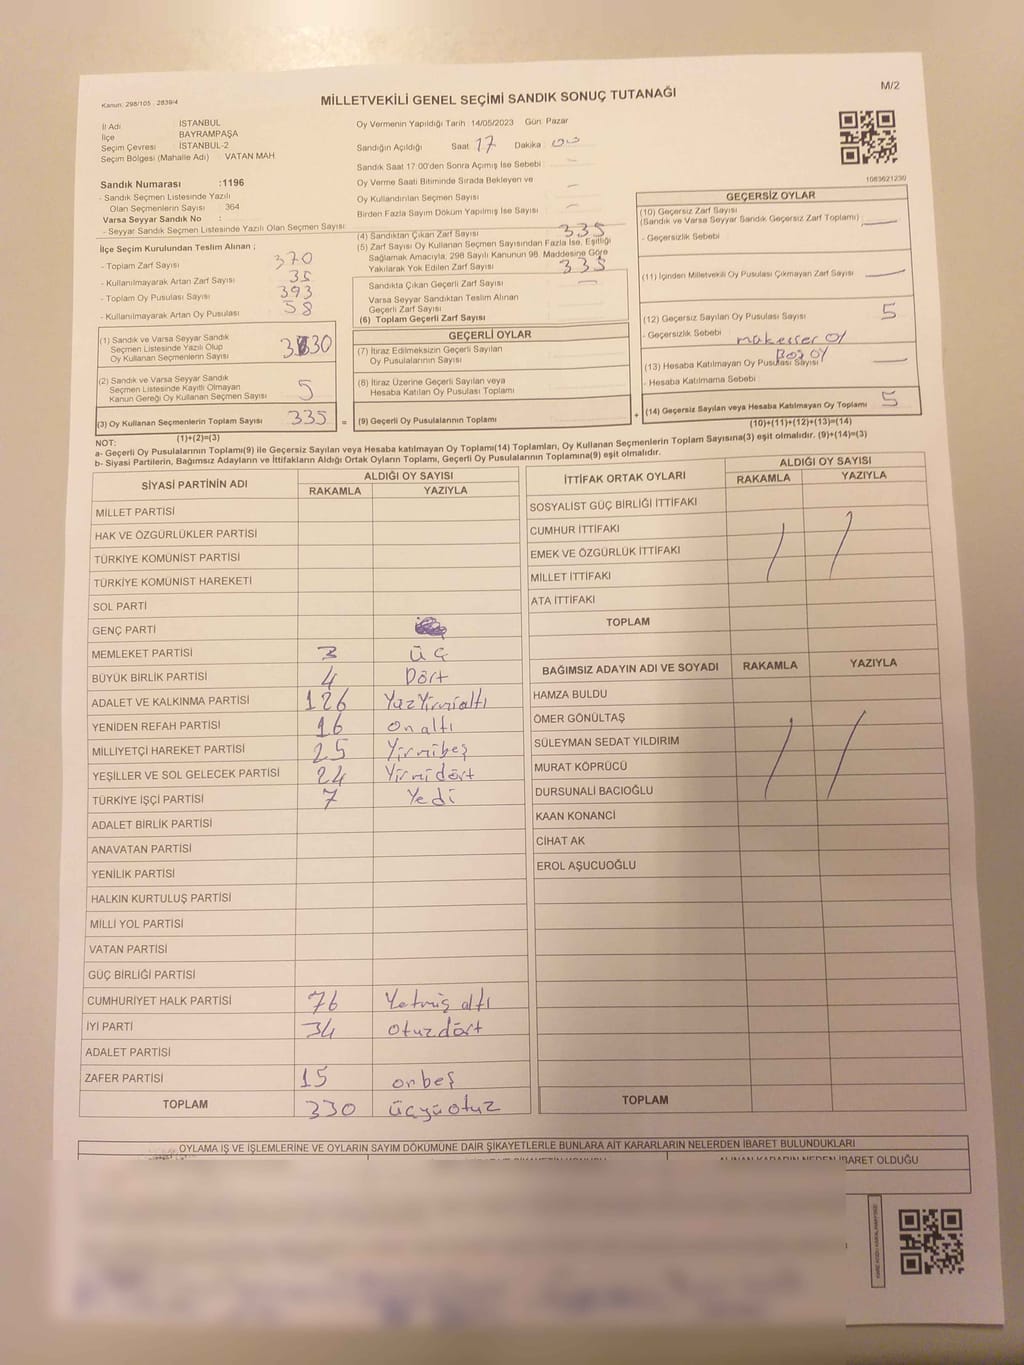 Kanun: 298/105 , 2839/4
MİLLETVEKİLİ GENEL SEÇİMİ SANDIK SONUÇ TUTANAĞI
M/2
İl Adı : İSTANBUL
İlçe : BAYRAMPAŞA
Seçim Çevresi : İSTANBUL-2
Seçim Bölgesi (Mahalle Adı) : VATAN MAH
Sandık Numarası :1196
- Sandık Seçmen Listesinde Yazılı
Olan Seçmenlerin Sayısı : 364
Varsa Seyyar Sandık No :
- Seyyar Sandık Seçmen Listesinde Yazılı Olan Seçmen Sayısı:
İlçe Seçim Kurulundan Teslim Alınan ;
- Toplam Zarf Sayısı 370
- Kullanılmayarak Artan Zarf Sayısı 35
- Toplam Oy Pusulası Sayısı 393
- Kullanılmayarak Artan Oy Pusulası 58
(1) Sandık ve Varsa Seyyar Sandık
Seçmen Listesinde Yazılı Olup
Oy Kullanan Seçmenlerin Sayısı 330
(2) Sandık ve Varsa Seyyar Sandık
Seçmen Listesinde Kayıtlı Olmayan
Kanun Gereği Oy Kullanan Seçmen Sayısı 5
(3) Oy Kullanan Seçmenlerin Toplam Sayısı 335 =
(1)+(2)=(3)
Oy Vermenin Yapıldığı Tarih 14/05/2023 Gün: Pazar
Sandığın Açıldığı Saat 17 Dakika 00
Sandık Saat 17:00'den Sonra Açımış İse Sebebi -
Oy Verme Saati Bitiminde Sırada Bekleyen ve
Oy Kullandırılan Seçmen Sayısı -
Birden Fazla Sayım Döküm Yapılmış İse Sayısı -
(4) Sandıktan Çıkan Zarf Sayısı 335
(5) Zarf Sayısı Oy Kullanan Seçmen Sayısından Fazla İse, Eşitliği
Sağlamak Amacıyla, 298 Sayılı Kanunun 98. Maddesine Göre
Yakılarak Yok Edilen Zarf Sayısı 335
Sandıkta Çıkan Geçerli Zarf Sayısı -
Varsa Seyyar Sandıktan Teslim Alınan
Geçerli Zarf Sayısı
(6) Toplam Geçerli Zarf Sayısı
GEÇERLİ OYLAR
(7) İtiraz Edilmeksizin Geçerli Sayılan
Oy Pusulalarının Sayısı
(8) İtiraz Üzerine Geçerli Sayılan veya
Hesaba Katılan Oy Pusulası Toplamı
(9) Geçerli Oy Pusulalarının Toplamı +
1083621230
GEÇERSİZ OYLAR
(10) Geçersiz Zarf Sayısı
(Sandık ve Varsa Seyyar Sandık Geçersiz Zarf Toplamı)
- Geçersizlik Sebebi
(11) İçinden Milletvekili Oy Pusulası Çıkmayan Zarf Sayısı
(12) Geçersiz Sayılan Oy Pusulası Sayısı 5
- Geçersizlik Sebebi mükerrer oy
Boş oy
(13) Hesaba Katılmayan Oy Pusulası Sayısı
- Hesaba Katılmama Sebebi
(14) Geçersiz Sayılan veya Hesaba Katılmayan Oy Toplamı 5
(10)+(11)+(12)+(13)=(14)
NOT:
a- Geçerli Oy Pusulaları Toplamı(9) ile Geçersiz Sayılan veya Hesaba katılmayan Oy Toplamı(14) Toplamları, Oy Kullanan Seçmenlerin Toplam Sayısına(3) eşit olmalıdır. (9)+(14)=(3)
b- Siyasi Partilerin, Bağımsız Adayların ve İttifakların Aldığı Ortak Oyların Toplamı, Geçerli Oy Pusulalarının Toplamına(9) eşit olmalıdır.
SİYASİ PARTİNİN ADI ALDIĞI OY SAYISI
RAKAMLA YAZIYLA
MİLLET PARTİSİ
HAK VE ÖZGÜRLÜKLER PARTİSİ
TÜRKİYE KOMÜNİST PARTİSİ
TÜRKİYE KOMÜNİST HAREKETİ
SOL PARTİ
GENÇ PARTİ
MEMLEKET PARTİSİ 3 üç
BÜYÜK BİRLİK PARTİSİ 4 Dört
ADALET VE KALKINMA PARTİSİ 126 Yüzyirmialtı
YENİDEN REFAH PARTİSİ 16 onaltı
MİLLİYETÇİ HAREKET PARTİSİ 25 Yirmibeş
YEŞİLLER VE SOL GELECEK PARTİSİ 24 Yirmidört
TÜRKİYE İŞÇİ PARTİSİ 7 Yedi
ADALET BİRLİK PARTİSİ
ANAVATAN PARTİSİ
YENİLİK PARTİSİ
HALKIN KURTULUŞ PARTİSİ
MİLLİ YOL PARTİSİ
VATAN PARTİSİ
GÜÇ BİRLİĞİ PARTİSİ
CUMHURİYET HALK PARTİSİ 76 Yetmiş altı
İYİ PARTİ 34 otuzdört
ADALET PARTİSİ
ZAFER PARTİSİ 15 onbeş
TOPLAM 330 üçyüotuz
İTTİFAK ORTAK OYLARI ALDIĞI OY SAYISI
RAKAMLA YAZIYLA
SOSYALİST GÜÇ BİRLİĞİ İTTİFAKI
CUMHUR İTTİFAKI
EMEK VE ÖZGÜRLÜK İTTİFAKI
MİLLET İTTİFAKI
ATA İTTİFAKI
TOPLAM
BAĞIMSIZ ADAYIN ADI VE SOYADI RAKAMLA YAZIYLA
HAMZA BULDU
ÖMER GÖNÜLTAŞ
SÜLEYMAN SEDAT YILDIRIM
MURAT KÖPRÜCÜ
DURSUNALİ BACIOĞLU
KAAN KONANCİ
CİHAT AK
EROL AŞUCUOĞLU
TOPLAM
OYLAMA İŞ VE İŞLEMLERİNE VE OYLARIN SAYIM DÖKÜMÜNE DAİR ŞİKAYETLERLE BUNLARA AİT KARARLARIN NELERDEN İBARET BULUNDUKLARI
ALINAN KARARIN NEDEN İBARET OLDUĞU